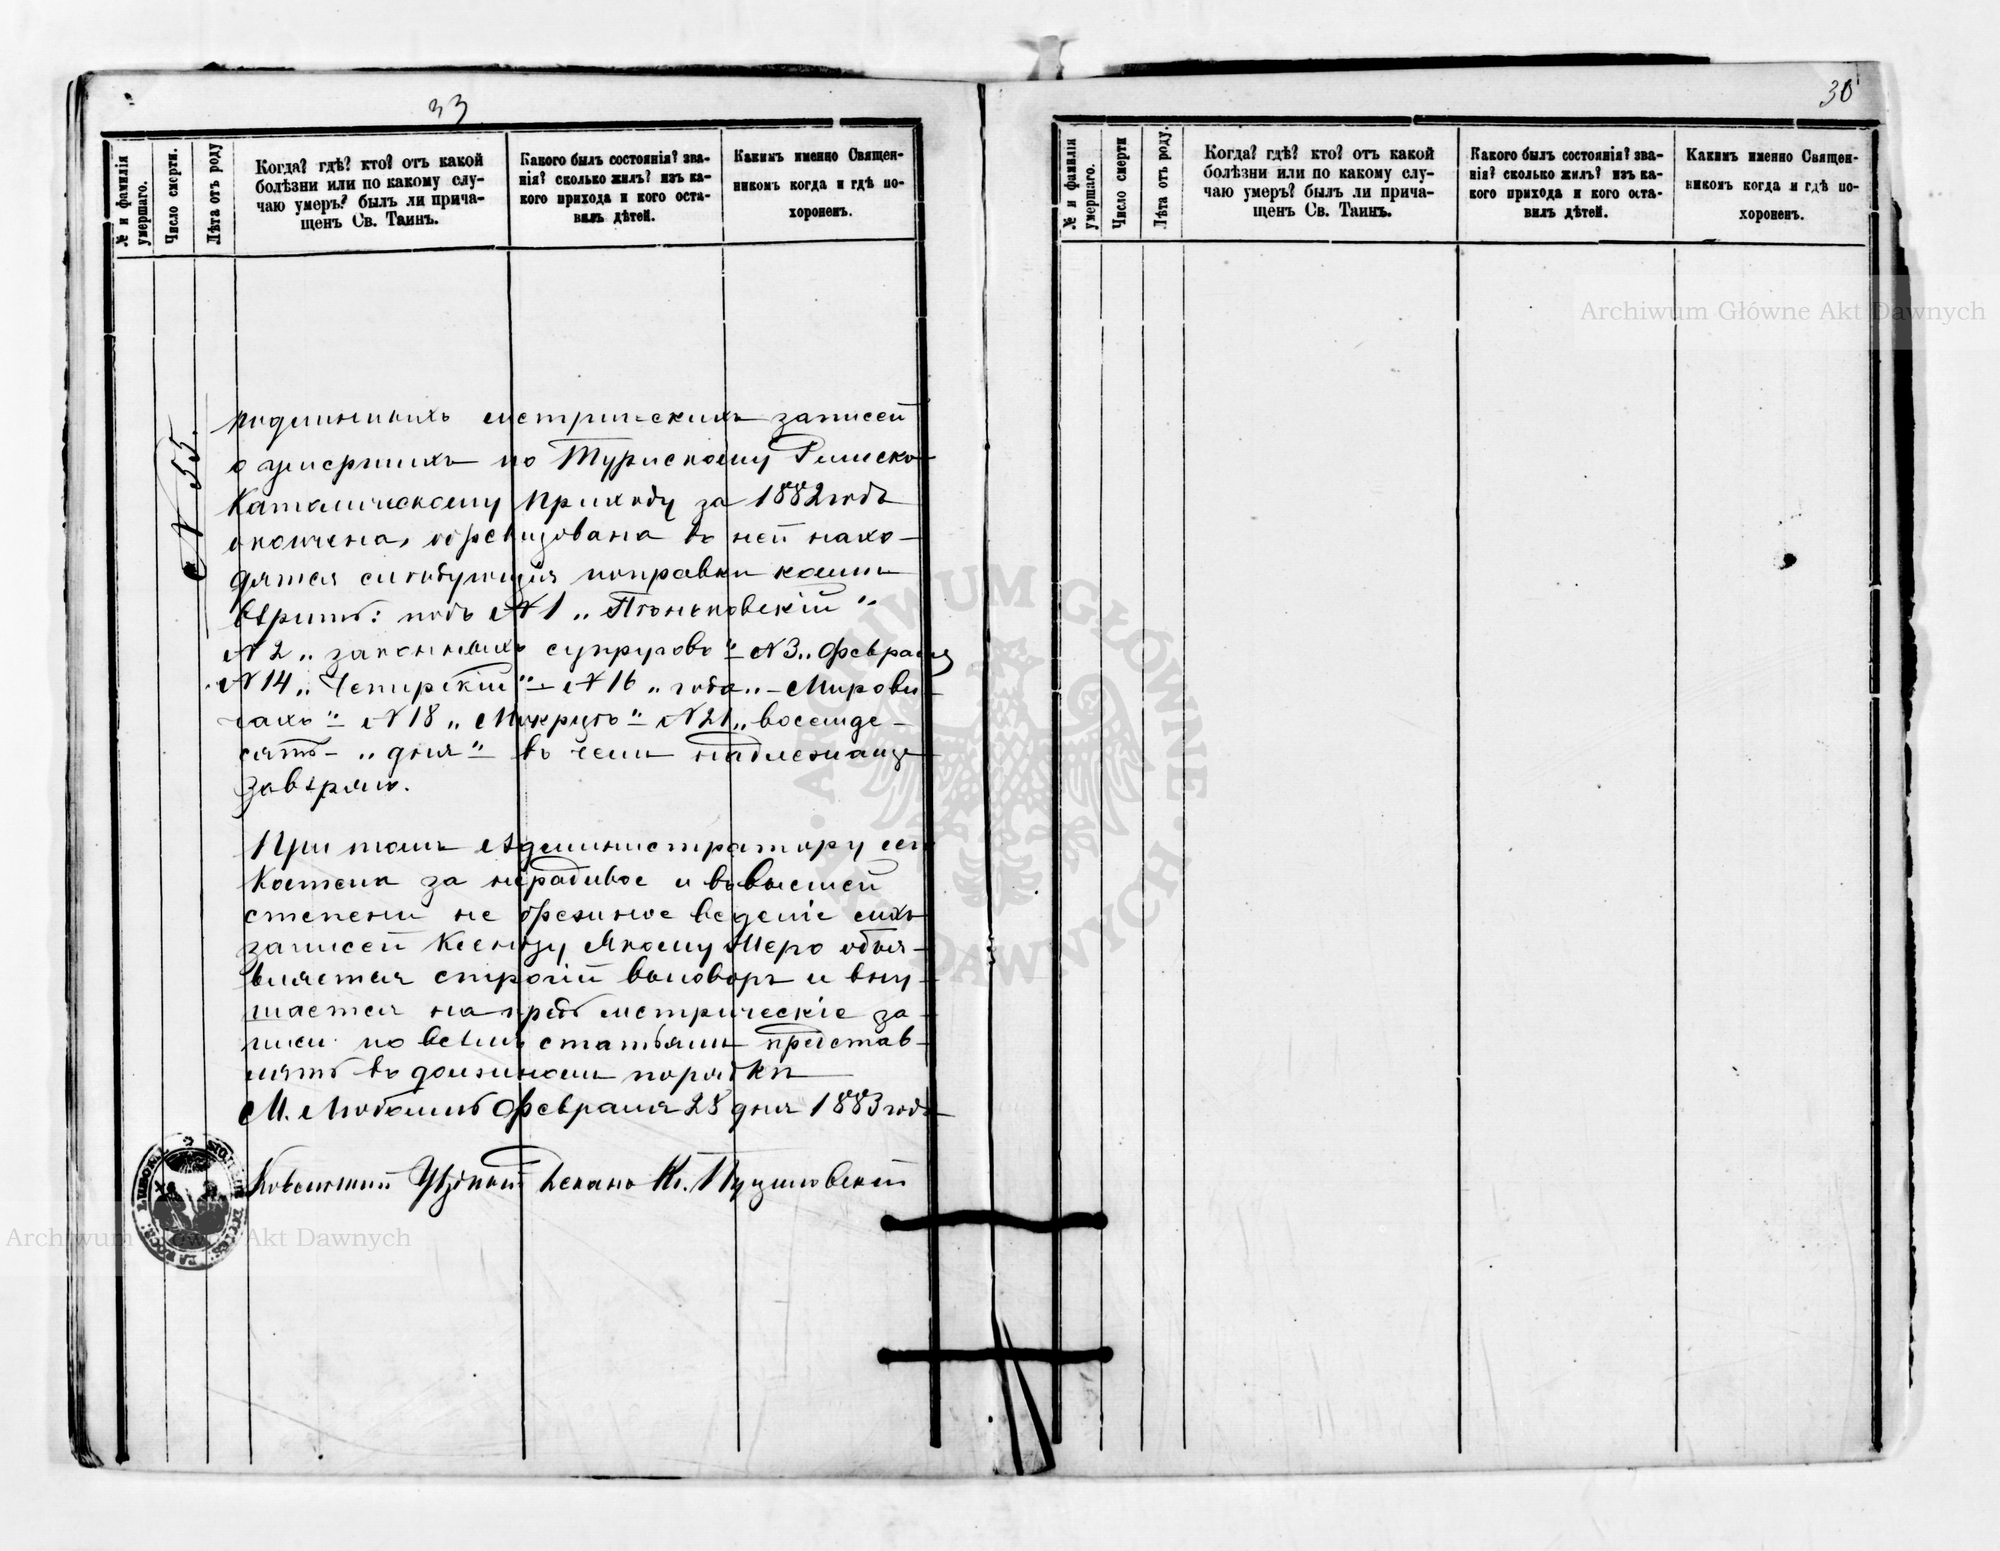 33
№ и фамилія умершаго.
Число смерти.
Лѣта отъ роду
Когда? гдѣ? кто? отъ какой
болѣзни или по какому слу-
чаю умеръ? былъ ли прича-
щенъ Св. Таинъ.
Какого былъ состоянія? зва-
нія? сколько жилъ? изъ ка-
кого прихода и кого оста-
вилъ дѣтей.
Какимъ именно Священ-
никомъ когда и гдѣ по-
хороненъ.
N 55.
подлинныхъ метрическихъ записей
о умершихъ по Турискому Римско-
Католическому Приходу за 1882 годъ
окончена, обревизована въ ней нахо-
дятся слѣдующія поправки коимъ
вѣрить: подъ N 1 „Пѣньковскій"
N 2 „законныхъ супруговъ" – N 3 „Февраля
N 14 „ – N 16 „года„ – Мирови-
чахъ" – N 18 „ " N 21 „восемде-
сять – „дня" – въ чемъ надлежаще
завѣряю.
При томъ Администратору сего
Костела за нерадивое и въ высшей
степени не брежное веденіе сихъ
записей Ксендзу Якому Шеро объя-
вляется строгій выговоръ и вну-
шается на предъ метрическіе за-
писи по всѣмъ статьямъ представ-
лять въ должномъ порядкѣ
М. Любомль Февраля 28 дня 1883 года
Ковельскій Уѣздный Деканъ Кс.
30
№ и фамилія умершаго.
Число смерти
Лѣта отъ роду.
Когда? гдѣ? кто? отъ какой
болѣзни или по какому слу-
чаю умеръ? былъ ли прича-
щенъ Св. Таинъ.
Какого былъ состоянія? зва-
нія? сколько жилъ? изъ ка-
кого прихода и кого оста-
вилъ дѣтей.
Какимъ именно Священ-
никомъ когда и гдѣ по-
хороненъ.
Archiwum Główne Akt Dawnych
ARCHIWUM GŁÓWNE AKT DAWNYCH
Archiwum Główne Akt Dawnych